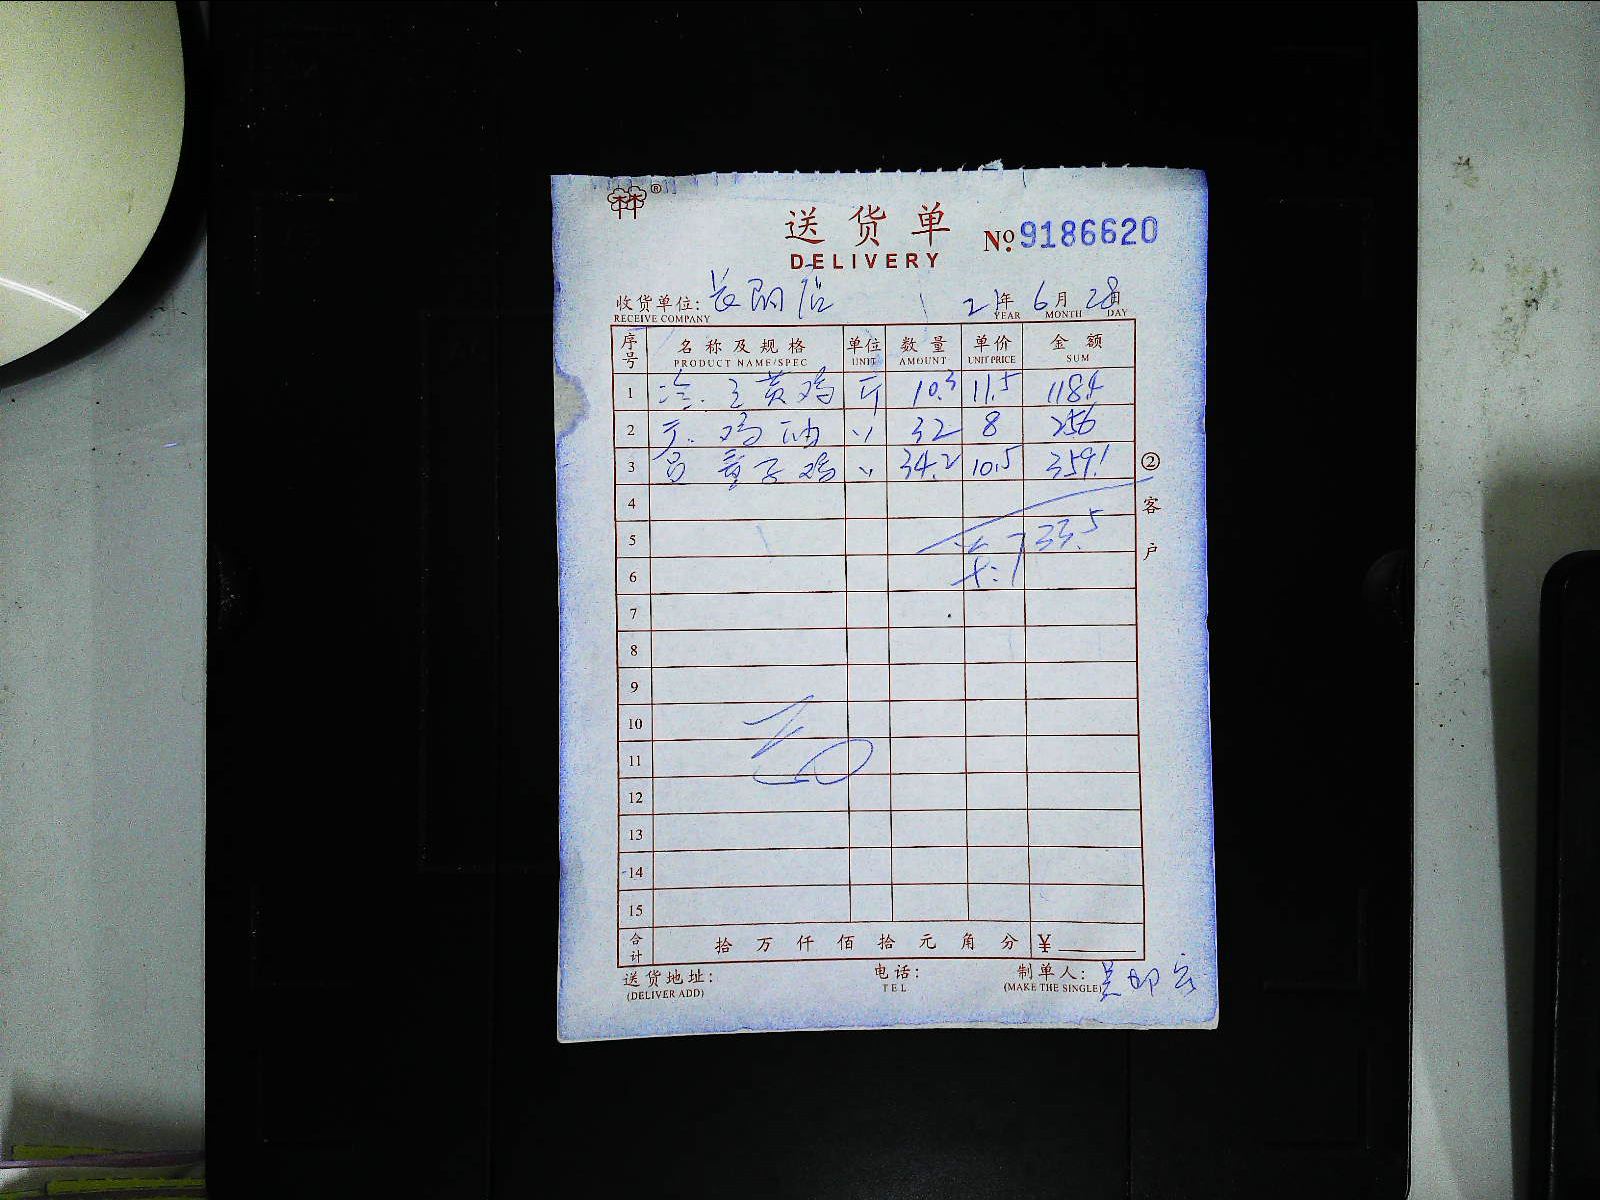 ®
送货单 №9186620
DELIVERY
收货单位: 长阳店 21年 6月 28日
RECEIVE COMPANY YEAR MONTH DAY
序号 名称及规格 单位 数量 单价 金额
PRODUCT NAME/SPEC UNIT AMOUNT UNIT PRICE SUM
1 黄鸡 斤 10.3 11.5 118.4
2 鸡油 〃 32 8 256
3 童子鸡 〃 34.2 10.5 359.1
4
5 733.5
6
7
8
9
10
11
12
13
14
15
合计 拾 万 仟 佰 拾 元 角 分 ¥
送货地址: 电话: 制单人:
(DELIVER ADD) TEL (MAKE THE SINGLE)
②客户